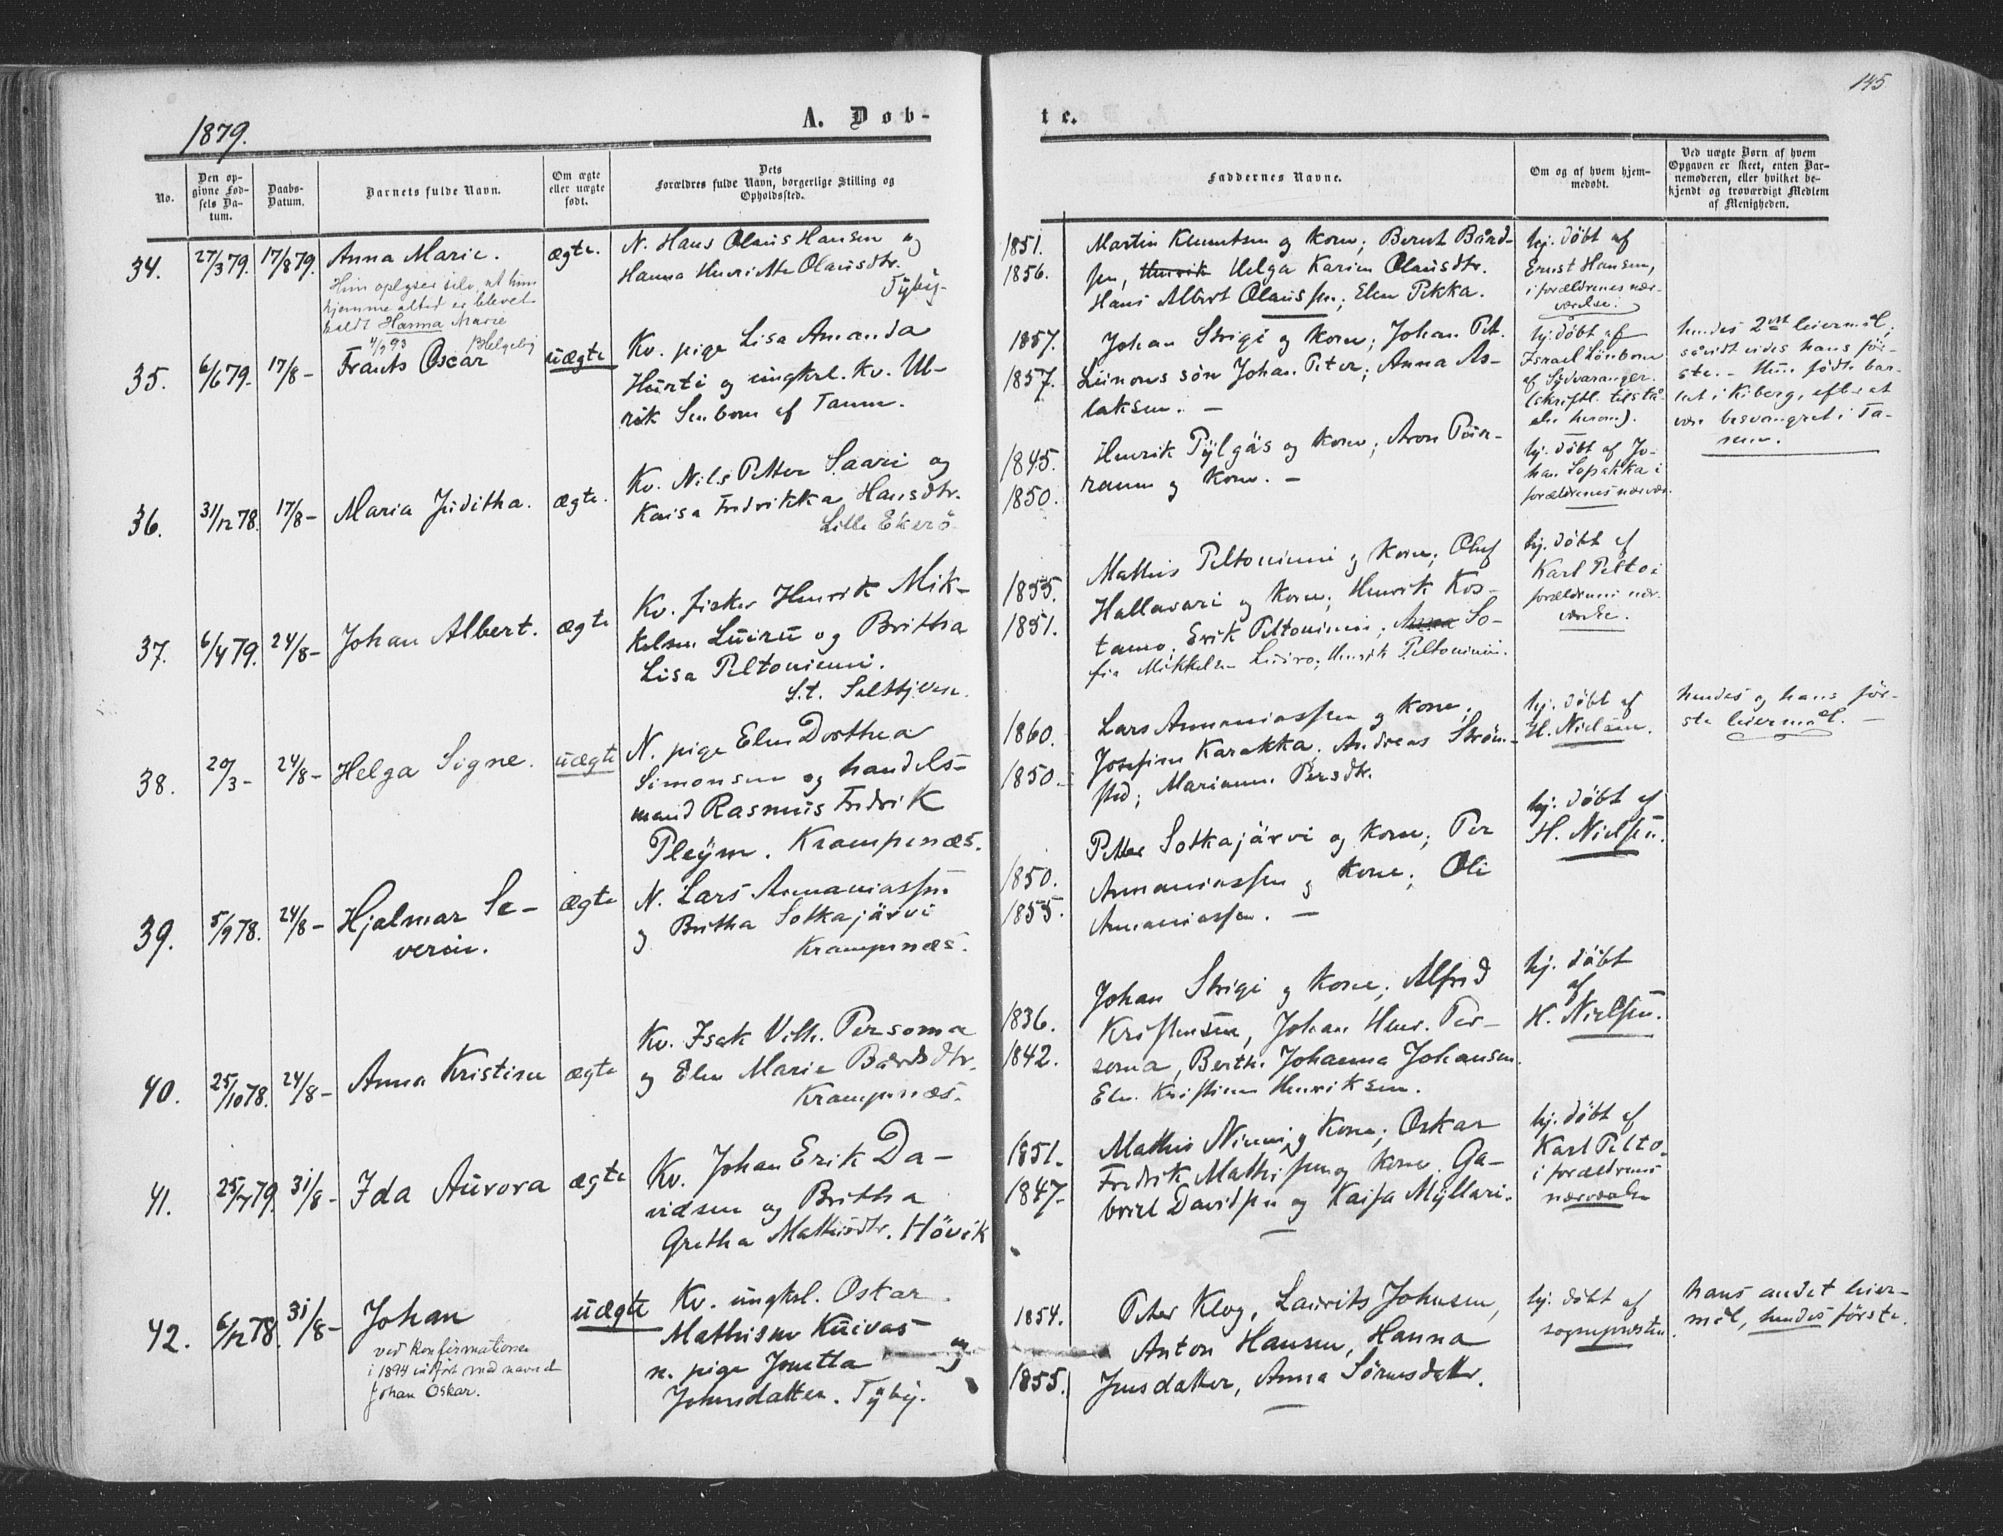 145
1879.
A. Døb-
te.
No.
Den op-
givne Fød-
sels Da-
tum.
Daabs-
Datum.
Barnets fulde Navn.
Om ægte
eller uægte
født.
Dets
Forældres fulde Navn, borgerlige Stilling og
Opholdssted.
Faddernes Navne.
Om og af hvem hjem-
medøbt.
Ved uægte Børn af hvem
Opgaven er skeet, enten Bar-
nemoderen, eller hvilket be-
kjendt og troværdigt Medlem
af Menigheden.
34.
27/3 79.
17/8 79.
Anna Marie.
Hun oplyser selv, at hun
hjemme altid er blevet
kaldt Hanna Marie
4/9 93
ægte.
N. Hans Olaus Hansen og
Hanna Henriette Olausdtr.
Tyby.
1851.
1856.
Martin Klemetsen og kone; Bernt Bård-
sen, Henrik Helga Karine Olausdtr.
Hans Albert Olaussen; Elen Pekka.
hj. døbt af
Ernst Hansen,
i forældrenes nær-
værelse.
35.
6/6 79.
17/8 –
Frants Oscar
uægte
Kv. pige Lisa Amanda
Hurti og ungkrl. Kv. Ul-
rik Senbom af Tanen.
1857.
1857.
Johan Strigi og kone; Johan Pet.
Leinonens søn Johan Peter; Anna As-
laksen. –
hj. døbt af
Israel Lönbom
af Sydvaranger.
(skriftl. tilstå-
else herom).
hendes 2det leiermål,
såvidt vides hans før-
ste. – Hun fødte bar-
net i Kiberg, efter at
være besvangret i Ta-
nen.
36.
31/12 78.
17/8 –
Maria Juditha.
ægte.
Kv. Nils Petter Saari og
Kaisa Fredrikka Hansdtr.
Lille Ekerö
1845.
1850.
Henrik Pylgäs og kone; Aron
og kone. –
hj. døbt af Jo-
han Sopakka i
forældrenes nærvær.
37.
6/4 79.
24/8 –
Johan Albert.
ægte
Kv. fisker Henrik Mik-
kelsen Luiru og Britha
Lisa Peltoniemi.
St. Saltbjeven.
1855.
1851.
Mathis Peltoniemi og kone; Oluf
Hallavari og kone; Henrik Kos-
tamo; Erik Peltoniemi; Anna So-
fia Mikkelsen Luiro; Henrik Peltoniemi.
hj. døbt af
Karl Pelto i
forældrenes nær-
værelse.
38.
20/3 –
24/8 –
Helga Signe.
uægte
N. pige Elen Dorthea
Simonsen og handels-
mand Rasmus Fredrik
Pleym. Krampenæs.
1860.
1850.
Lars Annaniassen og kone;
Josefine Karakka; Andreas Strøm-
sted; Marianne Persdtr.
hj. døbt af
H. Nielsen.
hendes og hans før-
ste leiermål. –
39.
5/9 78.
24/8 –
Hjalmar Se-
verin.
ægte
N. Lars Annaniassen
og Britha Sotkajärvi
Krampenæs.
1850.
1855.
Petter Sotkajärvi og kone; Per
Annaniassen og kone; Oli
Annaniassen. –
hj. døbt af
H. Nielsen.
40.
25/10 78.
24/8 –
Anna Kristine
ægte
Kv. Isak Vilh. Persoma
og Elen Marie Bårdsdtr.
Krampenæs.
1836.
1842.
Johan Strigi og kone; Alfred
Kristensen, Johan Henr. Per-
soma, Berth. Johanna Johansen
Elen Kristine Henriksen.
hj. døbt
af
H. Nielsen.
41.
25/7 79.
31/8 –
Ida Aurora
ægte
Kv. Johan Erik Da-
vidsen og Britha
Gretha Mathisdtr. Hövik
1851.
1847.
Mathis Niemi og kone; Oskar
Fredrik Mathissen og kone; Ga-
briel Davidsen og Kaisa Myllari.
hj. døbt af
Karl Pelto
i forældrenes
nærværelse
42.
6/12 78.
31/8 –
Johan
ved konfirmationen
i 1894 indført med navnet
Johan Oskar.
uægte
Kv. ungkrl. Oskar
Mathisen Kuivas og
n. pige Jonetta
Johnsdatter. Tyby.
1854.
1855.
Peter Klog, Laurits Johnsen,
Anton Hansen, Hanna
Jensdatter, Anna Sörensdatter.
hj. døbt af
sognepresten
hans andet leier-
mål, hendes første.